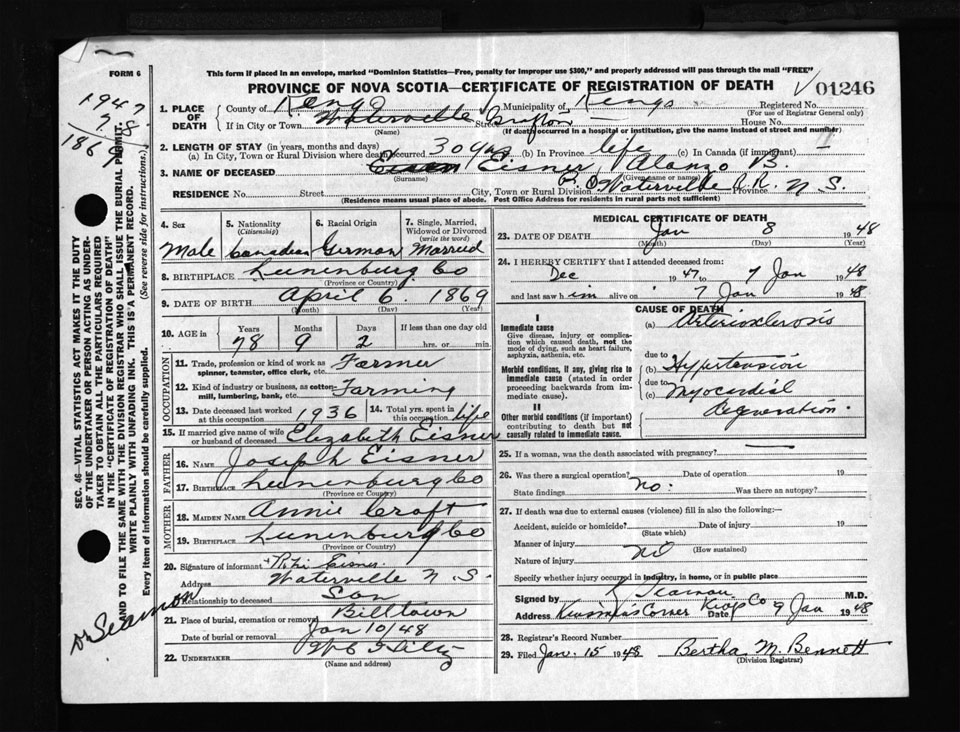 FORM 6
This form if placed in an envelope, marked "Dominion Statistics—Free, penalty for improper use $300," and properly addressed will pass through the mail "FREE"
PROVINCE OF NOVA SCOTIA—CERTIFICATE OF REGISTRATION OF DEATH
01246
1947
78
1869
SEC. 46—VITAL STATISTICS ACT MAKES IT THE DUTY
OF THE UNDERTAKER OR PERSON ACTING AS UNDER-
TAKER TO OBTAIN ALL THE PARTICULARS REQUIRED
IN THE "CERTIFICATE OF REGISTRATION OF DEATH"
AND TO FILE THE SAME WITH THE DIVISION REGISTRAR WHO SHALL ISSUE THE BURIAL PERMIT.
WRITE PLAINLY WITH UNFADING INK. THIS IS A PERMANENT RECORD.
Every item of Information should be carefully supplied. (See reverse side for instructions.)
1. PLACE OF DEATH County of Kings Municipality of Kings Registered No.
(For use of Registrar General only)
If in City or Town Waterville Street Grafton House No.
(Name) (If death occurred in a hospital or institution, give the name instead of street and number)
2. LENGTH OF STAY (in years, months and days)
(a) In City, Town or Rural Division where death occurred 30 yrs (b) In Province life (c) In Canada (if immigrant)
3. NAME OF DECEASED Eisner Alonzo B.
(Surname) (Given name or names)
RESIDENCE No. Street City, Town or Rural Division P.O. Waterville R.R. Province N.S.
(Residence means usual place of abode. Post Office Address for residents in rural parts not sufficient)
4. Sex Male
5. Nationality (Citizenship) Canadian
6. Racial Origin German
7. Single, Married, Widowed or Divorced (write the word) Married
8. BIRTHPLACE Lunenburg Co
(Province or Country)
9. DATE OF BIRTH April 6 1869
(Month) (Day) (Year)
10. AGE in Years Months Days If less than one day old
78 9 2 hrs. or min.
OCCUPATION
11. Trade, profession or kind of work as spinner, teamster, office clerk, etc. Farmer
12. Kind of industry or business, as cotton-mill, lumbering, bank, etc. Farming
13. Date deceased last worked at this occupation 1936 14. Total yrs. spent in this occupation life
15. If married give name of wife or husband of deceased Elizabeth Eisner
FATHER
16. NAME Joseph Eisner
17. BIRTHPLACE Lunenburg Co
(Province or Country)
MOTHER
18. MAIDEN NAME Annie Croft
19. BIRTHPLACE Lunenburg Co
(Province or Country)
20. Signature of informant Eisner
Address Waterville N.S.
Relationship to deceased Son
21. Place of burial, cremation or removal Billtown
Date of burial or removal Jan 10/48
22. UNDERTAKER
(Name and address)
MEDICAL CERTIFICATE OF DEATH
23. DATE OF DEATH Jan 8 1948
(Month) (Day) (Year)
24. I HEREBY CERTIFY that I attended deceased from:
Dec 1947 to 7 Jan 1948
and last saw him alive on 7 Jan 1948
CAUSE OF DEATH
I
Immediate cause
Give disease, injury or complication which caused death, not the mode of dying, such as heart failure, asphyxia, asthenia, etc.
(a) Arteriosclerosis
due to
Morbid conditions, if any, giving rise to immediate cause (stated in order proceeding backwards from immediate cause).
(b) Hypertension
due to
(c) Myocardial degeneration.
II
Other morbid conditions (if important) contributing to death but not causally related to immediate cause.
25. If a woman, was the death associated with pregnancy?
26. Was there a surgical operation? Date of operation 19
State findings no. Was there an autopsy?
27. If death was due to external causes (violence) fill in also the following:—
Accident, suicide or homicide? Date of injury 19
(State which)
Manner of injury
(How sustained)
Nature of injury
Specify whether injury occurred in industry, in home, or in public place
Signed by M.D.
Address Corner Kings Co Date 9 Jan 1948
28. Registrar's Record Number
29. Filed Jan. 15 1948 Bertha M. Bennett
(Division Registrar)